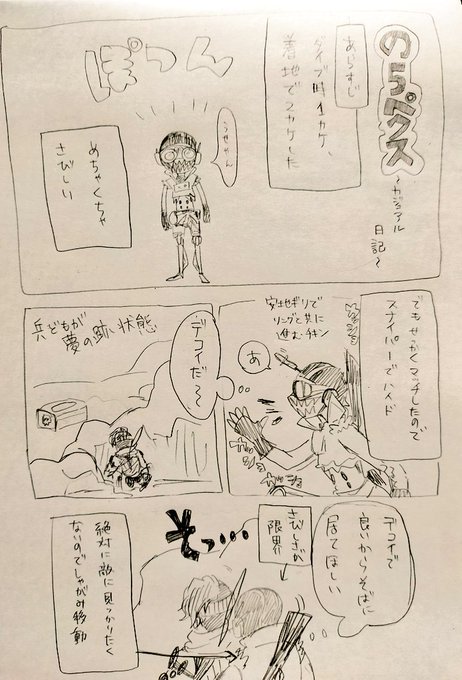 のらペクス
〜カジュアル
日記〜
あらすじ
ダイブ時1カケ、
着地で2カケした
ぽつん
うせやん
めちゃくちゃ
さびしい
でもせっかくマッチしたので
スナイパーでハイド
安地ギリで
リングと共に
進むチキン
あ
デコイだ〜
兵どもが
夢の跡状態
デコイで
良いからそばに
居てほしい
さびしさが
限界
そっ・・・
絶対に敵に見つかりたく
ないのでしゃがみ移動